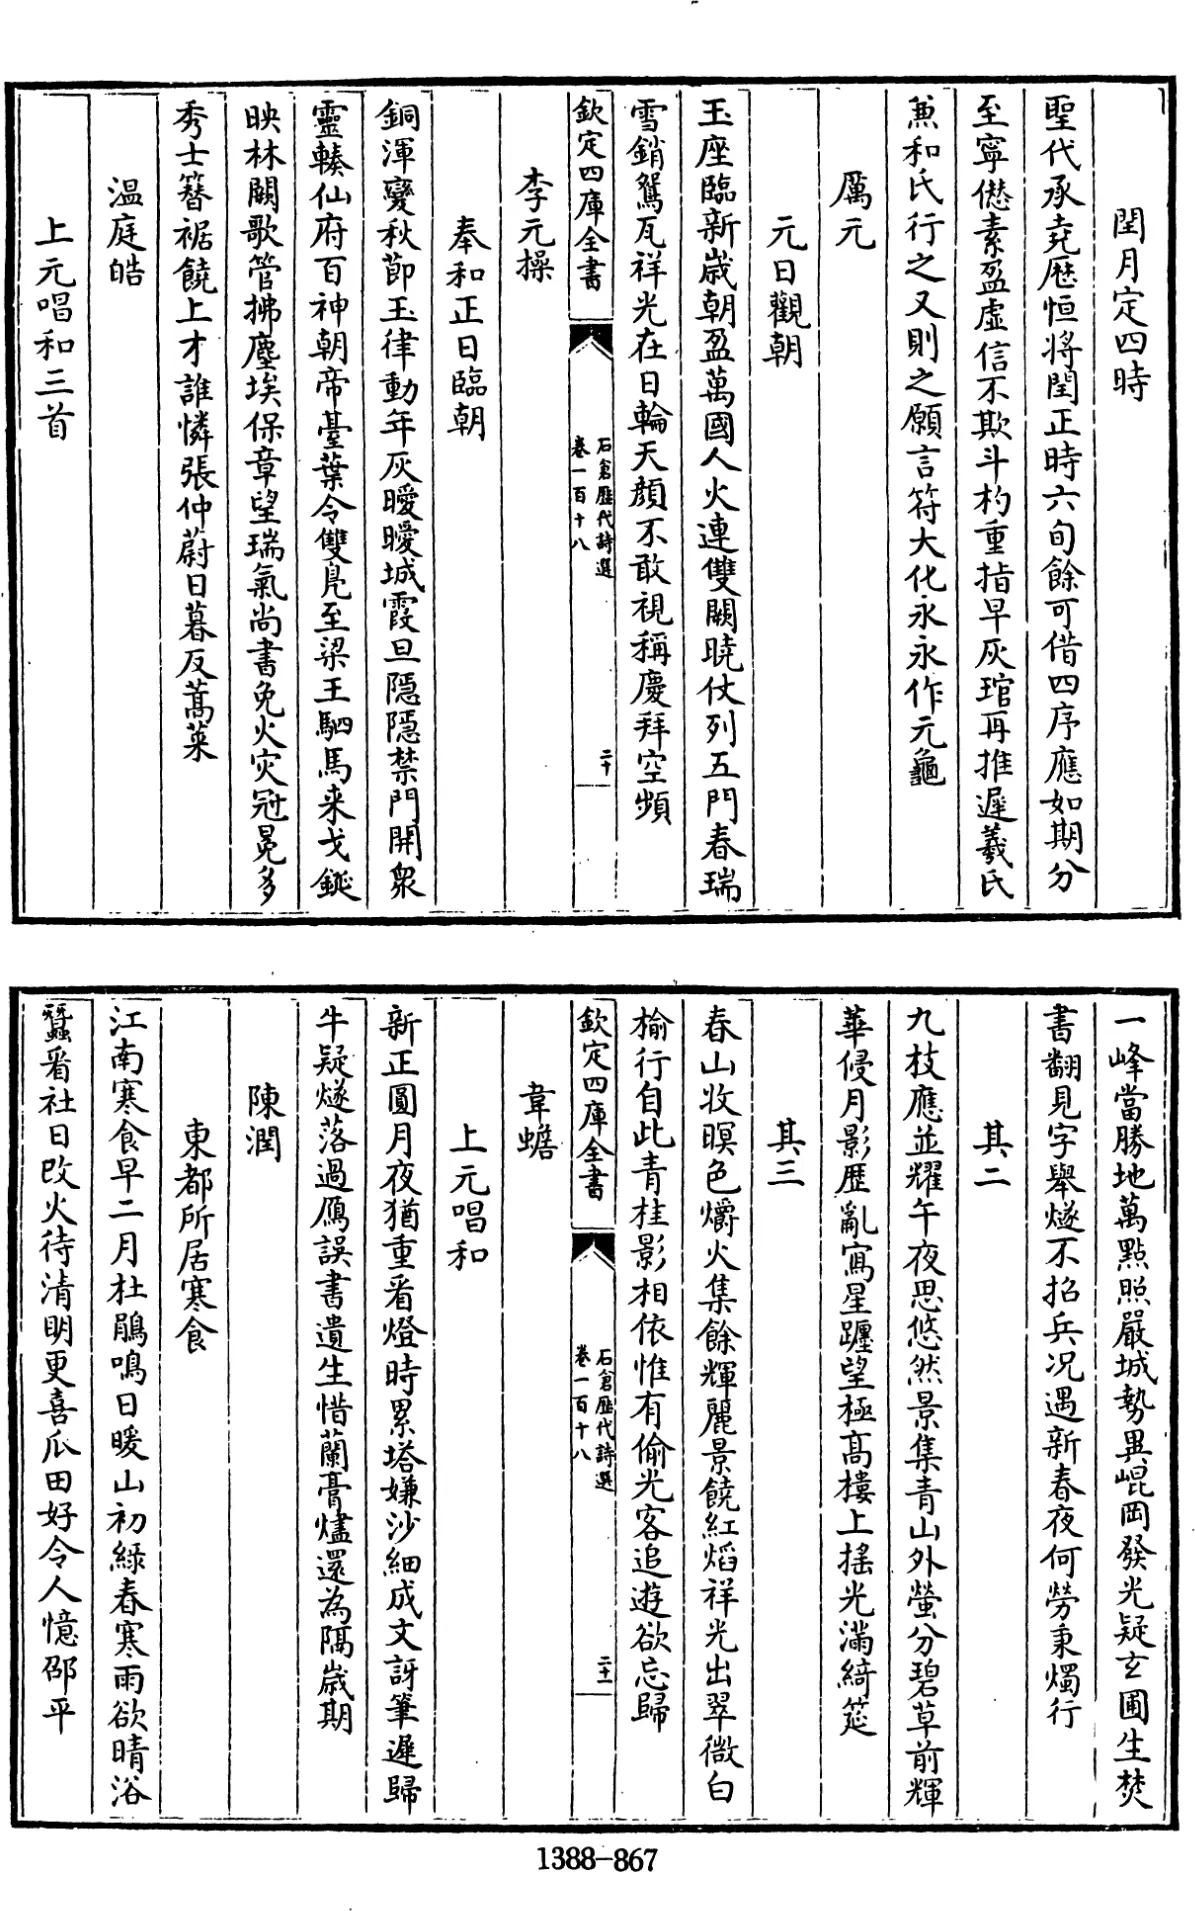 閏月定四時
聖代承堯厯恒將閏正時六旬餘可借四序應如期分
至寧愆素盈虛信不欺斗杓重指早灰琯再推遲羲氏
兼和氏行之又則之願言符大化永永作元龜
厲元
元日觀朝
玉座臨新歲朝盈萬國人火連雙闕曉仗列五門春瑞
雪銷鴛瓦祥光在日輪天顏不敢視稱慶拜空頻
欽定四庫全書
石倉歷代詩選
卷一百十八
二十
李元操
奉和正日臨朝
銅渾變秋節玉律動年灰曖曖城霞旦隱隱禁門開衆
靈轃仙府百神朝帝臺葉令雙鳧至梁王駟馬来戈鋋
映林闕歌管拂塵埃保章望瑞氣尚書免火灾冠冕多
秀士簪裾饒上才誰憐張仲蔚日暮反蒿萊
温庭皓
上元唱和三首
一峰當勝地萬點照嚴城勢異崐岡發光疑玄圃生焚
書翻見字舉燧不招兵况遇新春夜何勞秉燭行
其二
九枝應並耀午夜思悠然景集青山外螢分碧草前輝
華侵月影歷亂寫星躔望極高樓上搖光滿綺筵
其三
春山收暝色爝火集餘輝麗景饒紅焰祥光出翠微白
榆行自此青桂影相依惟有偷光客追遊欲忘歸
欽定四庫全書
石倉歷代詩選
卷一百十八
二十一
韋蟾
上元唱和
新正圓月夜猶重看燈時累塔嫌沙細成文訝筆遲歸
牛疑燧落過鴈誤書遺生惜蘭膏燼還為隔歲期
陳潤
東都所居寒食
江南寒食早二月杜鵑鳴日暖山初綠春寒雨欲晴浴
蠶看社日改火待清明更喜瓜田好令人憶邵平
1388-867